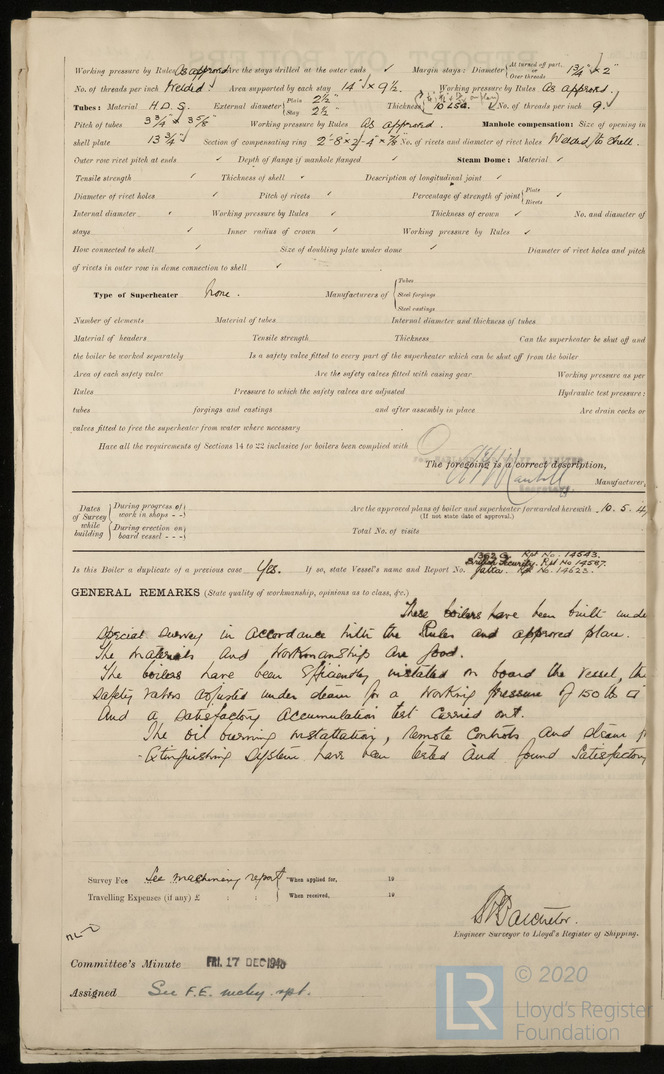 Working pressure by Rules As approved Are the stays drilled at the outer ends ✓ Margin stays: Diameter { At turned off part, or Over threads 1 3/4" x 2"
No. of threads per inch Welded Area supported by each stay 14" x 9 1/2. Working pressure by Rules As approved.
Tubes: Material H.D.S. External diameter { Plain 2 1/2" Stay 2 1/2" Thickness { 10 LSG. No. of threads per inch 9.
Pitch of tubes 3 3/4" x 3 5/8" Working pressure by Rules As approved. Manhole compensation: Size of opening in
shell plate 13 3/4" Section of compensating ring No. of rivets and diameter of rivet holes Welded to shell.
Outer row rivet pitch at ends ✓ Depth of flange if manhole flanged ✓ Steam Dome: Material ✓
Tensile strength ✓ Thickness of shell Description of longitudinal joint ✓
Diameter of rivet holes ✓ Pitch of rivets ✓ Percentage of strength of joint { Plate Rivets ✓
Internal diameter Working pressure by Rules ✓ Thickness of crown ✓ No. and diameter of
stays ✓ Inner radius of crown ✓ Working pressure by Rules ✓
How connected to shell ✓ Size of doubling plate under dome ✓ Diameter of rivet holes and pitch
of rivets in outer row in dome connection to shell ✓
Type of Superheater None. Manufacturers of { Tubes Steel forgings Steel castings
Number of elements Material of tubes Internal diameter and thickness of tubes
Material of headers Tensile strength Thickness Can the superheater be shut off and
the boiler be worked separately Is a safety valve fitted to every part of the superheater which can be shut off from the boiler
Area of each safety valve Are the safety valves fitted with easing gear Working pressure as per
Rules Pressure to which the safety valves are adjusted Hydraulic test pressure:
tubes forgings and castings and after assembly in place Are drain cocks or
valves fitted to free the superheater from water where necessary
Have all the requirements of Sections 14 to 22 inclusive for boilers been complied with
The foregoing is a correct description,
Secretary. Manufacturer.
Dates of Survey while building { During progress of work in shops - - } Are the approved plans of boiler and superheater forwarded herewith 10.5.4
(If not state date of approval.)
{ During erection on board vessel - - } Total No. of visits
1362 G. Rpt No. 14543.
British Security. Rpt No 14587.
Is this Boiler a duplicate of a previous case Yes. If so, state Vessel's name and Report No. Rpt No. 14623.
GENERAL REMARKS (State quality of workmanship, opinions as to class, &c.)
These boilers have been built unde
special survey in accordance with the Rules and approved plan.
The materials and workmanship are good.
The boilers have been efficiently installed on board the vessel, the
safety valves adjusted under steam for a working pressure of 150 lbs □"
and a satisfactory accumulation test carried out.
The oil burning installation, remote controls and steam f
extinguishing system have been tested and found satisfactory
Survey Fee See machinery report When applied for, 19
Travelling Expenses (if any) £ : : When received, 19
Engineer Surveyor to Lloyd's Register of Shipping.
Committee's Minute FRI. 17 DEC 1948
Assigned See F.E. mchy. rpt.
LR © 2020
Lloyd's Register
Foundation